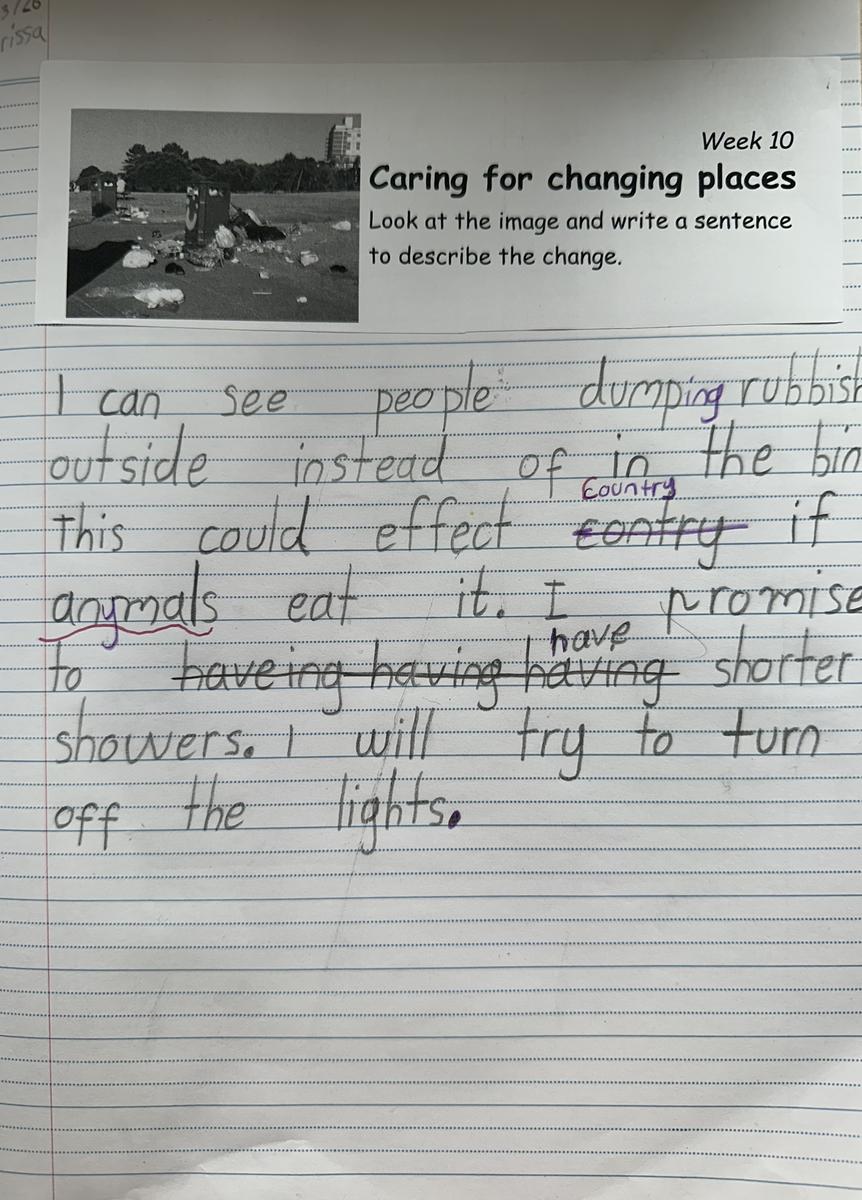 3/26
rissa
Week 10
Caring for changing places
Look at the image and write a sentence
to describe the change.
I can see people dumping rubbish
outside instead of in the bin
country
This could effect contry if
anymals eat it. I promise
have
to haveing having having shorter
showers. I will try to turn
off the lights.